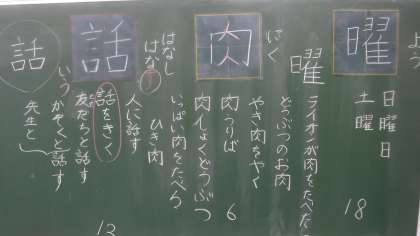 よう
曜
日曜日
土曜
18
曜
ライオンが肉をたべた
どうぶつのお肉
にく
肉
やき肉をやく
肉つりば
6
肉しょくどうぶつ
いっぱい肉をたべる
ひき肉
はなし
はなす
話
人に話す
話をきく
友だちと話す
かぞくと話す
いう
先生と
13
話